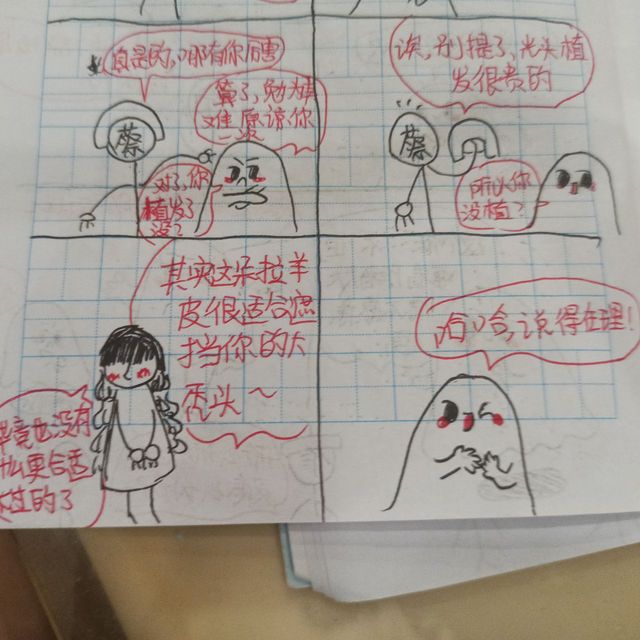 真是的,哪有你厉害
蔡
算了,勉为其
难愿谅你
对了,你
植发了
没?
诶,别提了,光头植
发很贵的
蔡
所以你
没植?
其实这朵拉羊
皮很适合遮
挡你的大
秃头~
毕竟也没有
什么更合适
过的了
哈哈,说得在理!